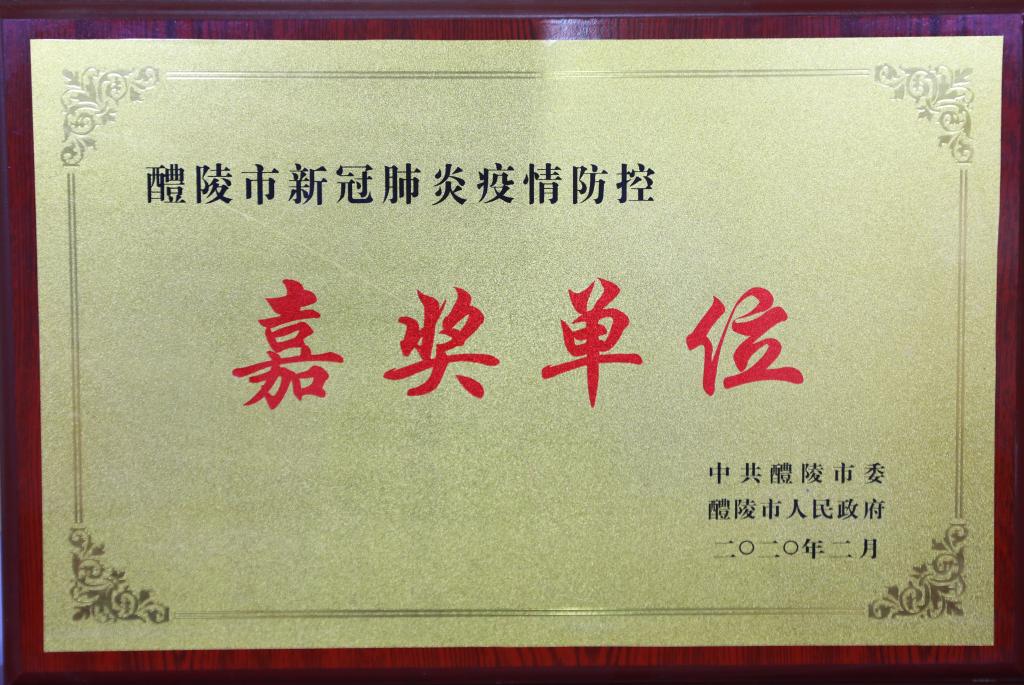 醴陵市新冠肺炎疫情防控
嘉奖单位
中共醴陵市委
醴陵市人民政府
二〇二〇年二月